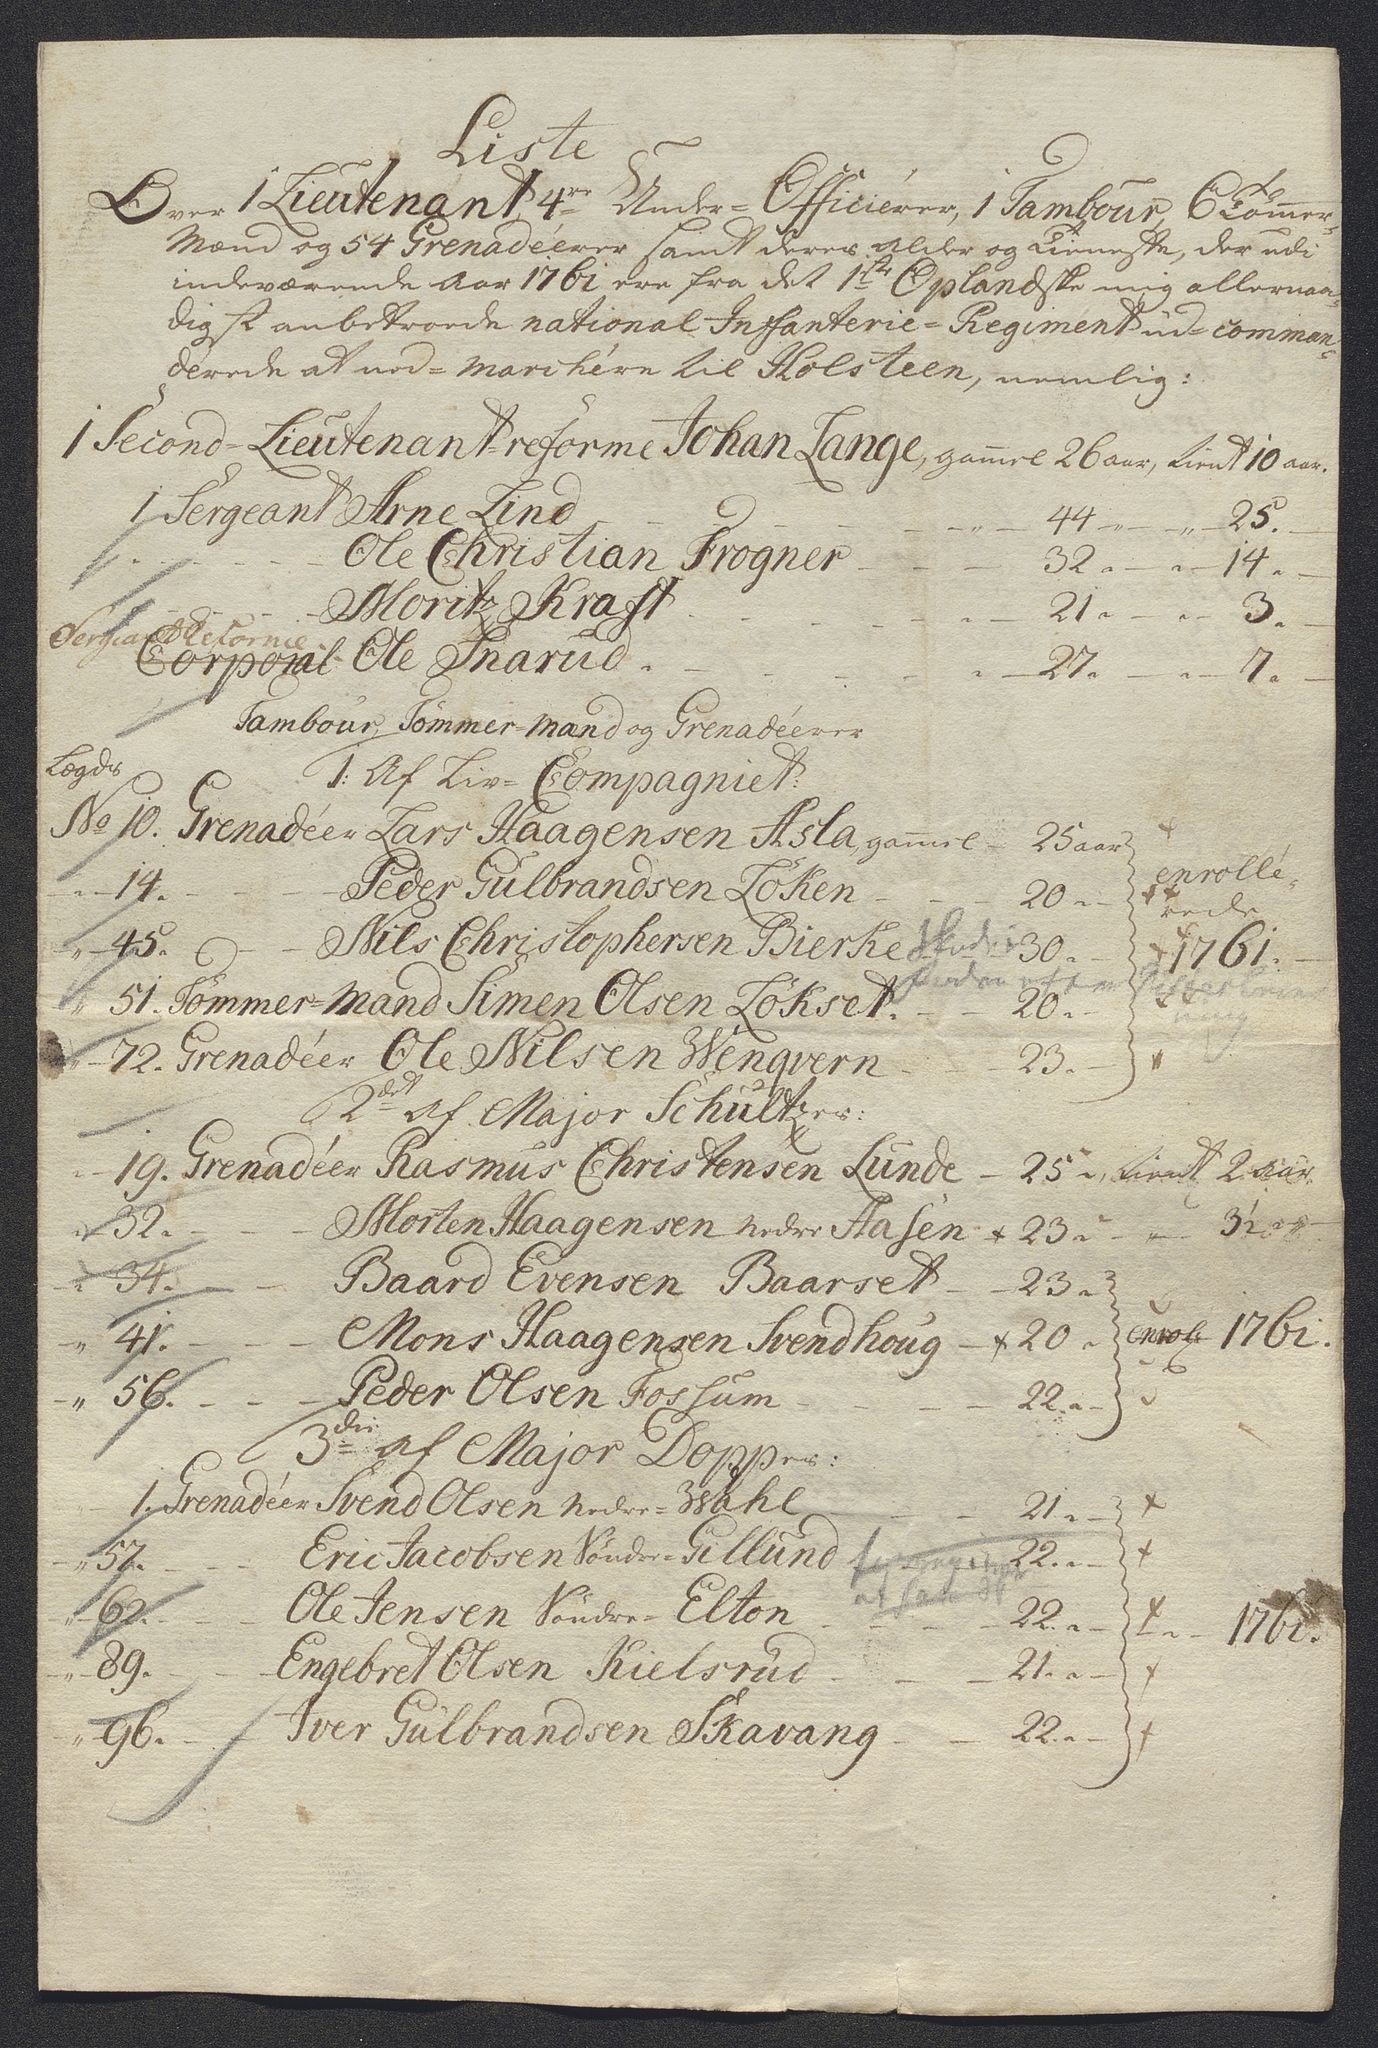 Liste
Over 1 Lieutenant, 4re Under=Officiérer, 1 Tambour, 6 Tømmer=
Mænd og 54 Grenadéerer samt deres alder og tieneste, der udi
indeværende Aar 1761 ere fra det 1ste Oplandske mig allernaa=
digst anbetroede national Infanterie=Regiment ud=comman=
derede at ned=marchére til Holsteen, nemlig:
1 Second=Lieutenant=reforme Johan Lange, gammel 26 aar, tient 10 aar.
1 Sergeant Arne Lind - - - 44 " - " 25. -
- - - Ole Christian Frogner - - - 32 " - " 14. -
- - - Moritz Kraft - - - 21 " - " 3. -
Sergiant Reformé
Corporal Ole Snarud. - - - 27. - " 7. -
Tambour, Tømmer=mænd og Grenadéerer
Lægds 1: Af Liv=Compagniet:
No 10. Grenadéer Lars Haagensen Asla, gammel - 25 aar +
" 14. - - - Peder Gulbrandsen Løken - - - 20 " - ++ enrollé=
rede
" 45. - - - Nils Christophersen Bierke - 30 " - + 1761. -
" 51. Tømmer=mand Simen Olsen Løkset. - - 20 " -
" 72. Grenadéer Ole Nilsen Wengvern - - - 23. -
2det Af Major Schultzes:
" 19. Grenadéer Rasmus Christensen Lunde - 25 ", tient 2 aar.
" 32. - - - Morten Haagensen nedre Aasen + 23 " - " - 3½ " -
" 34. - - - Baard Evensen Baarset - - 23 "
" 41. - - - Mons Haagensen Svendhoug - + 20 " enrol: 1761.
" 56. - - - Peder Olsen Fossum - - - 22 " -
3die af Major Dopps:
1. Grenadéer Svend Olsen nedre=Wahl - - 21 " - +
" 57. - - - Eric Jacobsen Søndre=Gillund - - 22 " - +
" 62. - - - Ole Jensen Søndre=Elton - - - 22 " - + " - 1761.
" 89. - - - Engebret Olsen Kielsrud - - - 21 " - +
" 96. - - - Iver Gulbrandsen Skavang - - 22 " - +